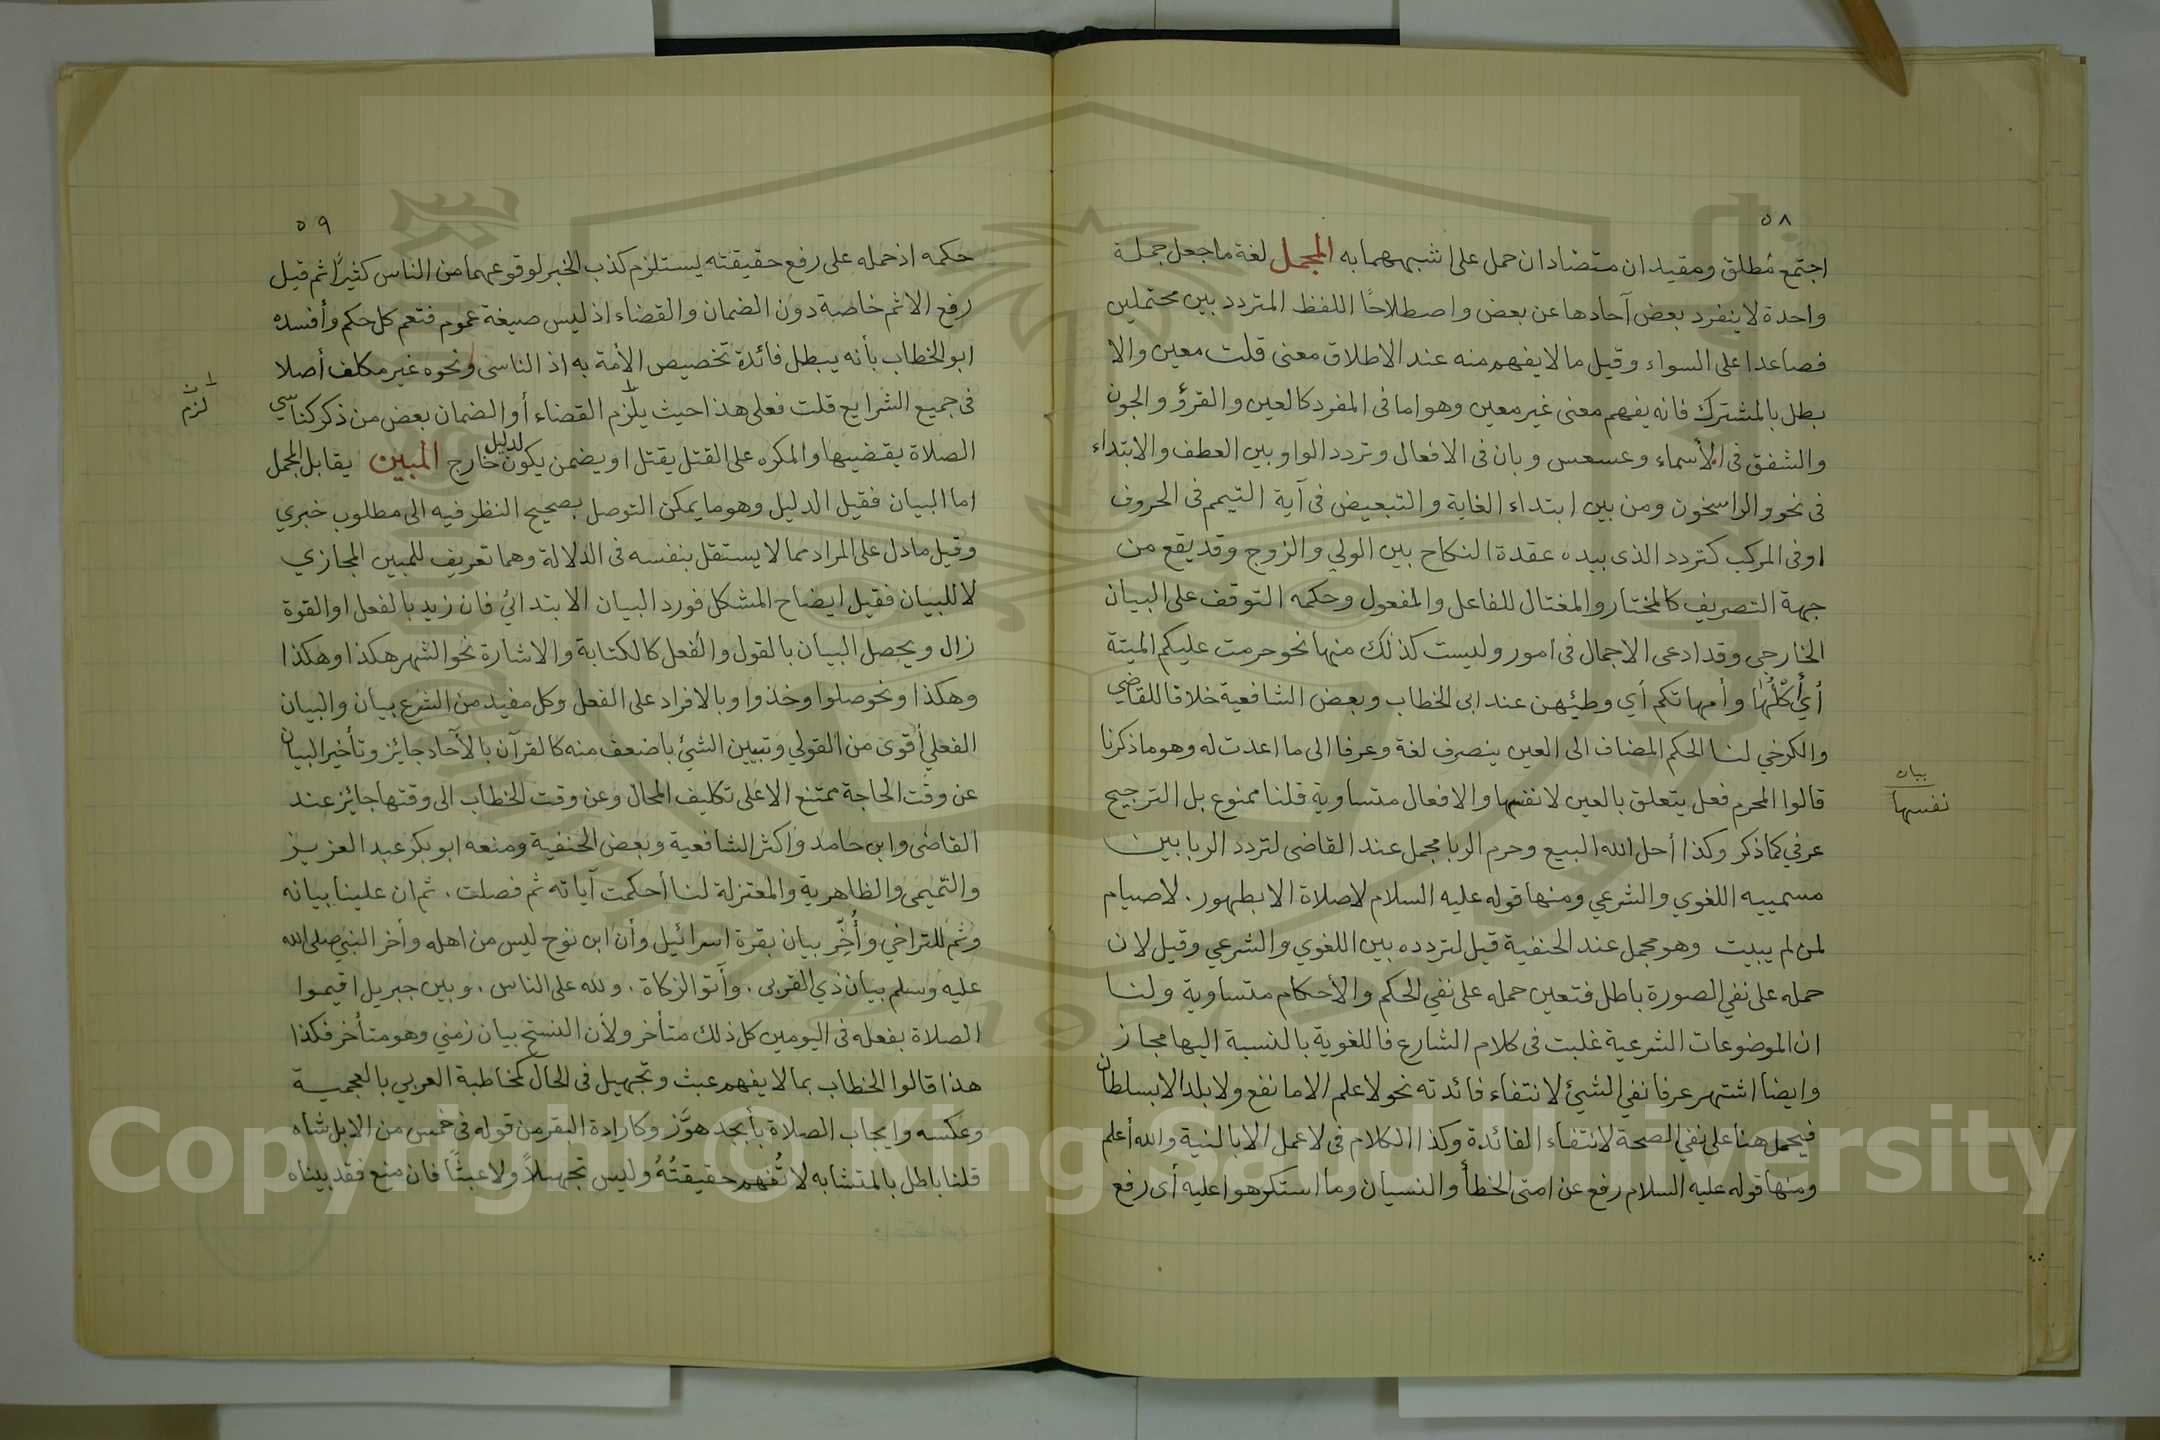 ٥٨
اجتمع مطلق ومقيدان متضادان حمل على اشبههما به المجمل لغة ما جعل جملة
واحدة لا ينفرد بعض آحادها عن بعض واصطلاحًا اللفظ المتردد بين محتملين
فصاعدا على السواء وقيل ما لا يفهم منه عند الاطلاق معنى قلت معين والا
بطل بالمشترك فانه يفهم معنى غير معين وهو اما فى المفرد كالعين والقرؤ والجون
والشفق فى الأسماء وعسعس وبان فى الافعال وتردد الواو بين العطف والابتداء
فى نحو والراسخون ومن بين ابتداء الغاية والتبعيض فى آية التيمم فى الحروف
او فى المركب كتردد الذى بيده عقدة النكاح بين الولي والزوج وقد يقع من
جهة التصريف كالمختار والمغتال للفاعل والمفعول وحكمه التوقف على البيان
الخارجي وقد ادعى الاجمال فى امور وليست كذلك منها نحو حرمت عليكم الميتة
أي أكلُها وأمهاتكم أي وطئهن عند ابى الخطاب وبعض الشافعية خلافا للقاضي
والكرخي لنا الحكم المضاف الى العين ينصرف لغة وعرفا الى ما اعدت له وهو ما ذكرنا
قالوا المحرم فعل يتعلق بالعين لا نفسها والافعال متساوية قلنا ممنوع بل الترجيح
بيان
نفسها
عرفي كما ذكر وكذا أحل الله البيع وحرم الربا مجمل عند القاضى لتردد الربا بين
مسمييه اللغوي والشرعي ومنها قوله عليه السلام لا صلاة الا بطهور . لا صيام
لمن لم يبيت وهو مجمل عند الحنفية قيل لتردده بين اللغوي والشرعي وقيل لان
حمله على نفي الصورة باطل فتعين حمله على نفي الحكم والأحكام متساوية ولنا
ان الموضوعات الشرعية غلبت فى كلام الشارع فاللغوية بالنسبة اليها مجاز
وايضا اشتهر عرفا نفي الشيئ لانتفاء فائدته نحو لا علم الا ما نفع ولا بلد الا بسلطان
فيحمل هنا على نفي الصحة لانتفاء الفائدة وكذا الكلام فى لا عمل الا بالنية والله أعلم
ومنها قوله عليه السلام رفع عن امتى الخطأ والنسيان وما استكرهوا عليه أى رفع
٥٩
حكمه اذ حمله على رفع حقيقته يستلزم كذب الخبر لوقوعهما من الناس كثيرًا ثم قيل
رفع الاثم خاصة دون الضمان والقضاء اذ ليس صيغة عموم فتعم كل حكم وأفسده
ابو الخطاب بأنه يبطل فائدة تخصيص الأمة به اذ الناسى ونحوه غير مكلف أصلا
فى جميع الشرايع قلت فعلى هذا حيث يلزم القضاء أو الضمان بعض من ذكر كناسي
لزم
الصلاة يقضيها والمكره على القتل يقتل او يضمن يكون لدليل خارج المبين يقابل المجمل
اما البيان فقيل الدليل وهو ما يمكن التوصل بصحيح النظر فيه الى مطلوب خبري
وقيل ما دل على المراد مما لا يستقل بنفسه فى الدلالة وهما تعريف للمبين المجازي
لا للبيان فقيل ايضاح المشكل فورد البيان الابتدائي فان زيد بالفعل او القوة
زال ويحصل البيان بالقول والفعل كالكتابة والاشارة نحو الشهر هكذا وهكذا
وهكذا ونحو صلوا وخذوا وبالافراد على الفعل وكل مفيد من الشرع بيان والبيان
الفعلي أقوى من القولي وتبيين الشيئ باضعف منه كالقرآن بالآحاد جائز وتأخير البيان
عن وقت الحاجة ممتنع الا على تكليف المحال وعن وقت الخطاب الى وقتها جائز عند
القاضى وابن حامد واكثر الشافعية وبعض الحنفية ومنعه ابو بكر عبد العزيز
والتميمى والظاهرية والمعتزلة لنا أحكمت آياته ثم فصلت . ثم ان علينا بيانه
وثم للتراخي وأُخِّر بيان بقرة اسرائيل وأن ابن نوح ليس من اهله وأخر النبي صلى الله
عليه وسلم بيان ذي القربى . وآتوا الزكاة . ولله على الناس . وبين جبريل اقيموا
الصلاة بفعله فى اليومين كل ذلك متأخر ولأن النسخ بيان زمني وهو متأخر فكذا
هذا قالوا الخطاب بما لا يفهم عبث وتجهيل فى الحال كمخاطبة العربي بالعجمية
وعكسه وايجاب الصلاة بأبجد هوَّز وكارادة البقر من قوله في خمس من الابل شاه
قلنا باطل بالمتشابه لا تُفهم حقيقتُهُ وليس تجهيلاً ولا عبثًا فان منع فقد بيناه
Copyright © King Saud University